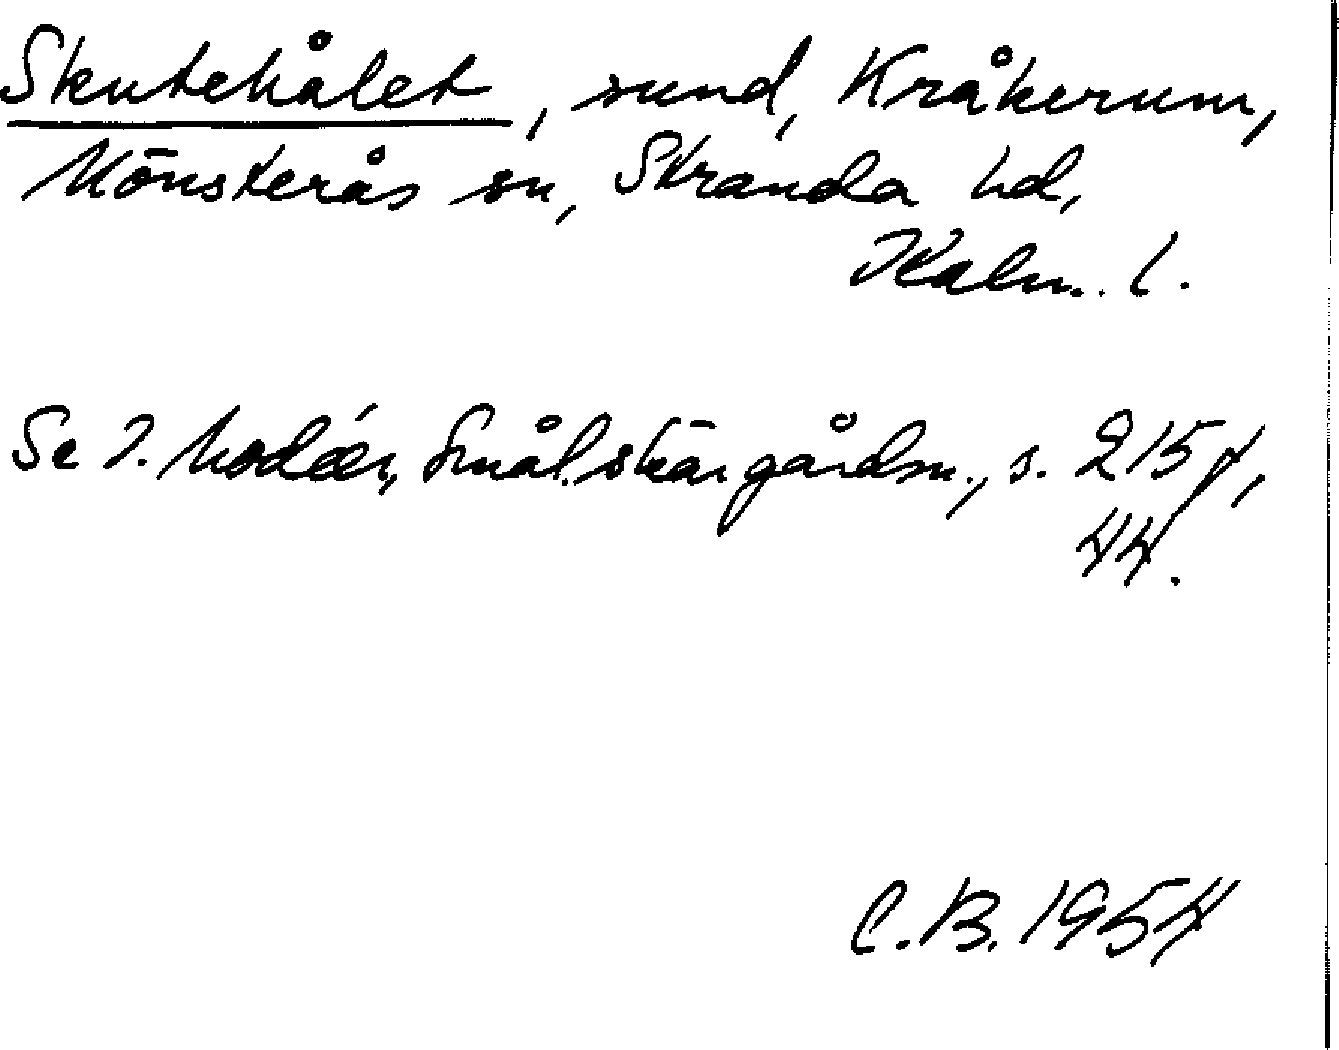 Skutehålet, sund, Kråkerum,
Mönsterås sn, Stranda hd,
Kalm. l.
Se I. Modéer, Smål. skärgårdsn., s. 215 f,
44.
C.B. 1954